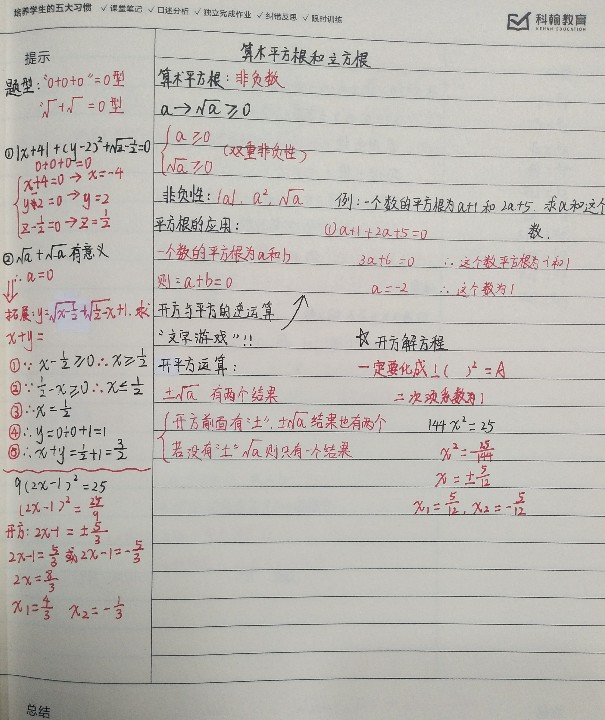 培养学生的五大习惯 ✓课堂笔记 ✓口述分析 ✓独立完成作业 ✓纠错反思 ✓限时训练
科翰教育
KEHAN EDUCATION
提示
题型:"0+0+0"=0型
"√+√=0型
①|x+4|+(y-2)²+√z-½=0
0+0+0=0
x+4=0→x=-4
y-2=0→y=2
z-½=0→z=½
②√a+√-a有意义
∴a=0
拓展:y=√x-½+√½-x+1.求
x+y=
①∵x-½≥0∴x≥½
②∵½-x≥0∴x≤½
③∴x=½
④∴y=0+0+1=1
⑤∴x+y=½+1=3/2
9(2x-1)²=25
(2x-1)²=25/9
开方:2x-1=±5/3
2x-1=5/3或2x-1=-5/3
2x=8/3
x₁=4/3 x₂=-1/3
算术平方根和立方根
算术平方根:非负数
a→√a≥0
a≥0
√a≥0
(双重非负性)
非负性:|a|,a²,√a 例:一个数的平方根为a+1和2a+5.求a和这个
数.
平方根的应用: (1)a+1+2a+5=0
一个数的平方根为a和b 3a+6=0 ∴这个数平方根为-1和1
则:a+b=0 a=-2 ∴这个数为1
开方与平方的逆运算
"文字游戏"!!
☆开方解方程
开平方运算: 一定要化成!( )²=A
±√a 有两个结果 二次项系数为1
开方前面有"±".±√a结果也有两个 144x²=25
若没有"±"√a则只有一个结果 x²=25/144
x=±5/12
x₁=5/12,x₂=-5/12
总结